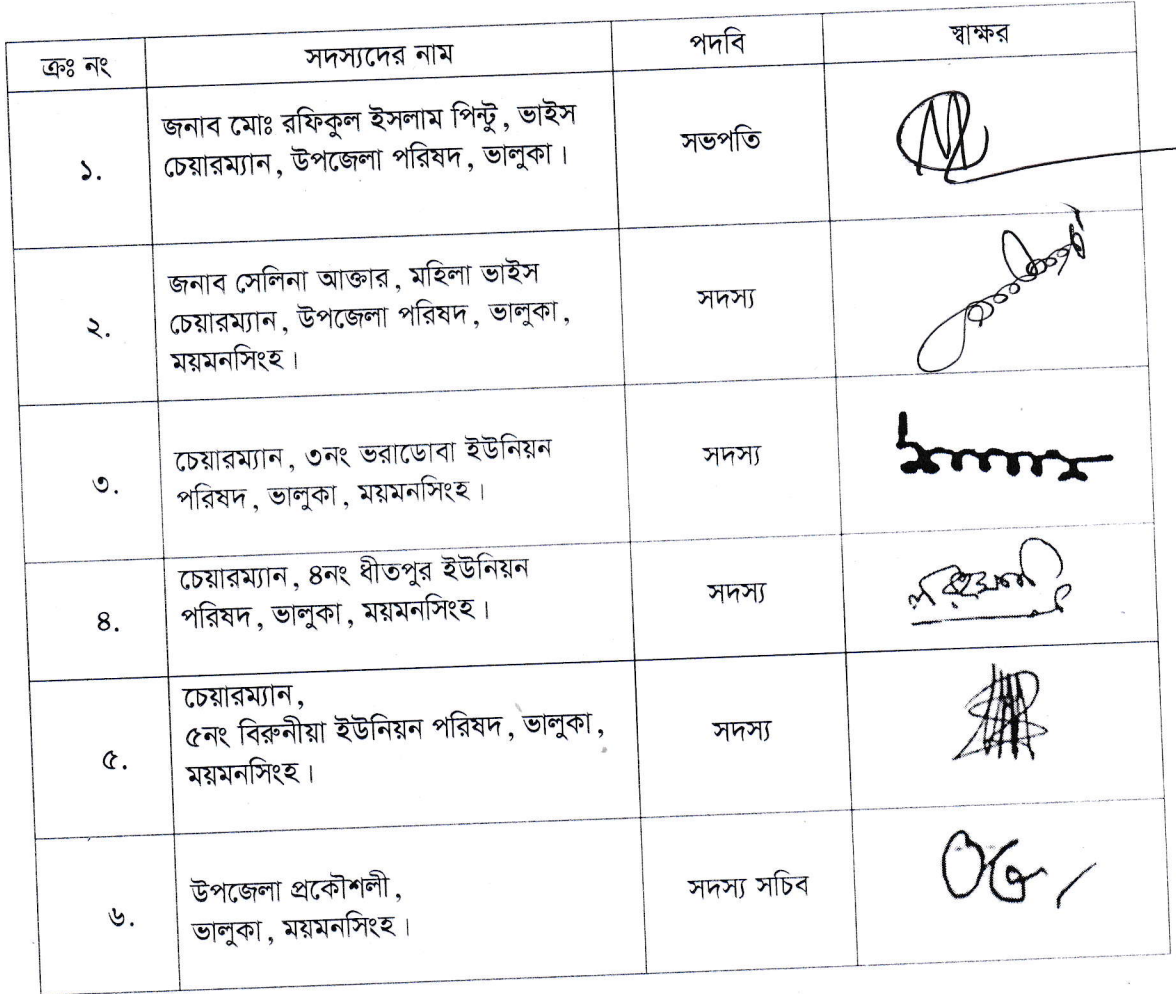 ক্রঃ নং সদস্যদের নাম পদবি স্বাক্ষর
১.
জনাব মোঃ রফিকুল ইসলাম পিন্টু, ভাইস
চেয়ারম্যান, উপজেলা পরিষদ, ভালুকা।
সভপতি
২.
জনাব সেলিনা আক্তার, মহিলা ভাইস
চেয়ারম্যান, উপজেলা পরিষদ, ভালুকা,
ময়মনসিংহ।
সদস্য
৩.
চেয়ারম্যান, ৩নং ভরাডোবা ইউনিয়ন
পরিষদ, ভালুকা, ময়মনসিংহ।
সদস্য
৪.
চেয়ারম্যান, ৪নং ধীতপুর ইউনিয়ন
পরিষদ, ভালুকা, ময়মনসিংহ।
সদস্য
৫.
চেয়ারম্যান,
৫নং বিরুনীয়া ইউনিয়ন পরিষদ, ভালুকা,
ময়মনসিংহ।
সদস্য
৬.
উপজেলা প্রকৌশলী,
ভালুকা, ময়মনসিংহ।
সদস্য সচিব